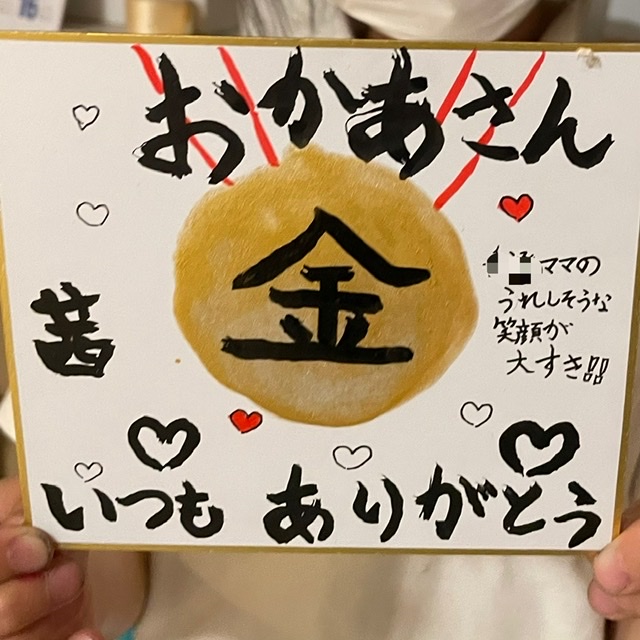 おかあさん
金
ママの
うれしそうな
笑顔が
大すき!!
茜
いつも ありがとう